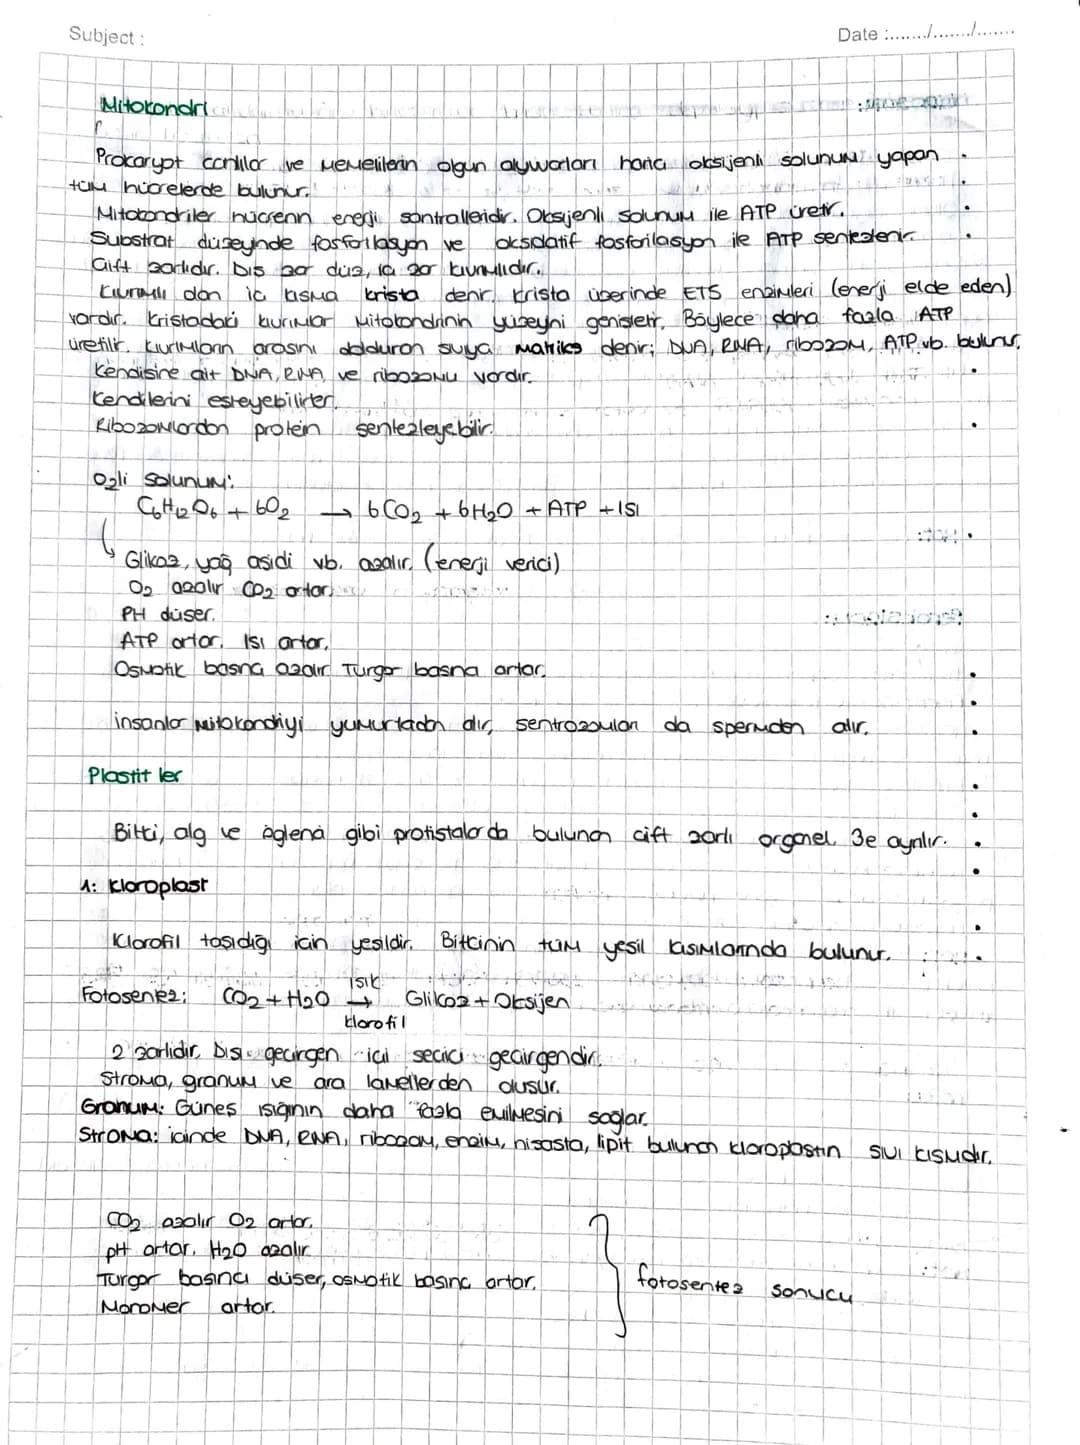 Subject :
Date :......./......./.......
Mitokondri
Prokaryot canlılar ve memelilerin olgun alyuvarları hariç oksijenli solunum yapan
tüm hücrelerde bulunur.
Mitokondriler hücrenin enerji santralleridir. Oksijenli solunum ile ATP üretir.
Substrat düzeyinde fosforilasyon ve oksidatif fosforilasyon ile ATP sentezlenir.
Çift zarlıdır. Dış zar düz, iç zar kıvrımlıdır.
Kıvrımlı olan iç kısma krista denir. Krista üzerinde ETS enzimleri (enerji elde eden)
vardır. Kristadaki kıvrımlar mitokondrinin yüzeyni genişletir. Böylece daha fazla ATP
üretilir. Kıvrımların arasını dolduran sıvıya matriks denir; DNA, RNA, ribozom, ATP vb. bulunur.
Kendisine ait DNA, RNA ve ribozomu vardır.
Kendilerini eşleyebilirler.
Ribozomlardan protein sentezleyebilir.
O2li solunum:
C6H12O6 + 6O2 → 6CO2 + 6H2O + ATP + ISI
↳ Glikoz, yağ asidi vb. azalır. (enerji verici)
O2 azalır CO2 artar.
PH düşer.
ATP artar. Isı artar.
Osmotik basınç azalır Turgor basıncı artar.
insanlar mitokondriyi yumurtadan alır, sentrozomları da spermden alır.
Plastitler
Bitki, alg ve öglena gibi protistalarda bulunan çift zarlı organel. 3e ayrılır.
1: Kloroplast
Klorofil taşıdığı için yeşildir. Bitkinin tüm yeşil kısımlarında bulunur.
Fotosentez: CO2 + H2O → Glikoz + Oksijen
ışık
klorofil
2 zarlıdır, Dışı geçirgen içi seçici geçirgendir.
Stroma, granum ve ara lamellerden oluşur.
Granum: Güneş ışığının daha fazla emilmesini sağlar.
Stroma: içinde DNA, RNA, ribozom, enzim, nişasta, lipit bulunan kloroplastın sıvı kısmıdır.
CO2 azalır O2 artar.
pH artar. H2O azalır
Turgor basıncı düşer, osmotik basınç artar.
Monomer artar.
fotosentez sonucu